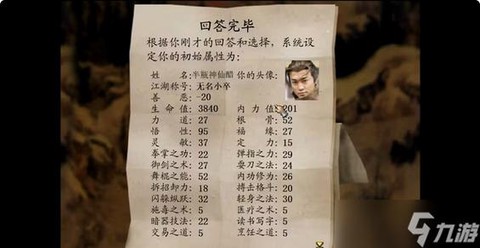 回答完毕
根据你刚才的回答和选择，系统设
定你的初始属性为：
姓名：半瓶神仙醋 你的头像：
江湖称号：无名小卒
善恶：-20
生命值：3840 内力值：201
力道：27 根骨：52
悟性：95 福缘：27
灵敏：37 定力：15
拳掌之功：22 弹指之力：29
御剑之术：27 耍刀之法：24
舞棍之能：52 内功修为：26
拆招卸力：18 搏击格斗：20
闪躲纵跃：32 轻身之法：30
施毒之术：5 医疗之术：5
暗器技法：22 读书写字：5
交易之道：5 烹饪之道：5
九游